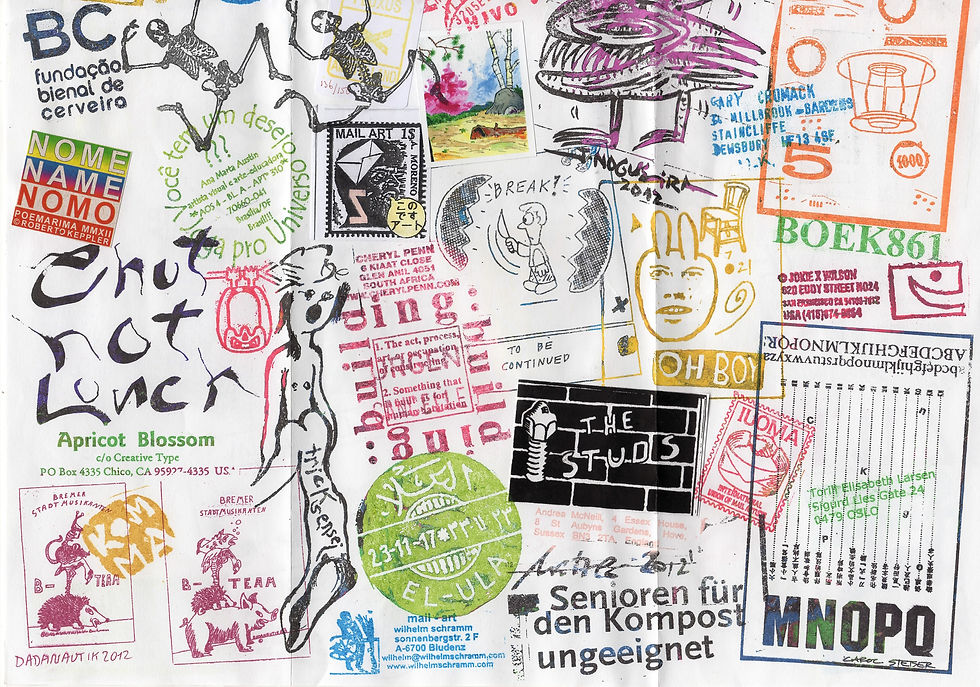 BC
fundação
bienal de
cerveira
NOME
NAME
NOMO
POEMARIMA MMXII
©ROBERTO KEPPLER
Você tem um desejo
???
Ana Marta Austin
artista visual e arte-educadora
70660-041
Brasília/DF
Brasil!!!
pro Universo
136/15
VIVO
MAIL ART 1$
A. MORENO
この
です
アート
BREAK!
NOGUEIRA
2012
GARY CROMACK
MILLBROOK-GARDENS
STAINCLIFFE
DEWSBURY WF13 4SF.
U.K.
5
1000
BOEK861
JOKIE X WILSON
620 EDDY STREET NO24
SAN FRANCISCO CA 94109-7612
USA (415)674-9884
CHERYL PENN
6 KIAAT CLOSE
GLEN ANIL 4051
SOUTH AFRICA
WWW.CHERYLPENN.COM
:building:
1. The act, process,
art, or occupation
of constructing.
2. Something that
is built, as for
human habitation
TO BE
CONTINUED
7.
21
OH BOY
ABCDEFGHIJKLMNOPQR
abcdefghijklmnopqrstuvwxyza
chut
not
Lunch
Apricot Blossom
c/o Creative Type
PO Box 4335 Chico, CA 95927-4335 USA
THE
STUDS
IUOMA
INTERNATIONAL
UNION OF MAIL
Torill Elisabeth Larsen
Sigurd Lies Gate 24
0479 OSLO
C
K
P
BREMER
STADTMUSIKANTEN
B-TEAM
KOM
MA
BREMER
STADTMUSIKANTEN
B-TEAM
DADANAUTIK 2012
tricksensei
23-11-17
EL-ULA
Andrea McNeill, 4 Essex House,
8 St Aubyns Gardens, Hove,
Sussex BN3 2TA, England
2012
Senioren für
den Kompost
ungeeignet
mail-art
wilhelm schramm
sonnenbergstr. 2 F
A-6700 Bludenz
wilhelm@wilhelmschramm.com
www.wilhelmschramm.com
MNOPQ
CAROL STETSER